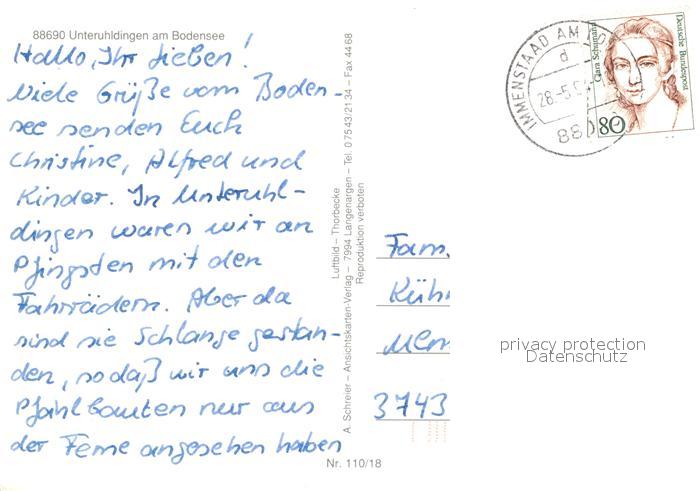 88690 Unteruhldingen am Bodensee
Hallo, Ihr Lieben!
Viele Grüße vom Boden-
see senden Euch
Christine, Alfred und
Kinder. In Unteruhl-
dingen waren wir an
Pfingsten mit den
Fahrrädern. Aber da
sind sie Schlange gestan-
den, sodaß wir uns die
Pfahlbauten nur aus
der Ferne angesehen haben
A. Schreier – Ansichtskarten-Verlag – 7994 Langenargen – Tel. 0 75 43/21 34 – Fax 44 68
Luftbild – Thorbecke
Reproduktion verboten
Nr. 110/18
IMMENSTAAD AM
d
28.-5.
88
Clara Schumann
Deutsche Bundespost
80
Fam.
Küh
Mem
3743
privacy protection
Datenschutz